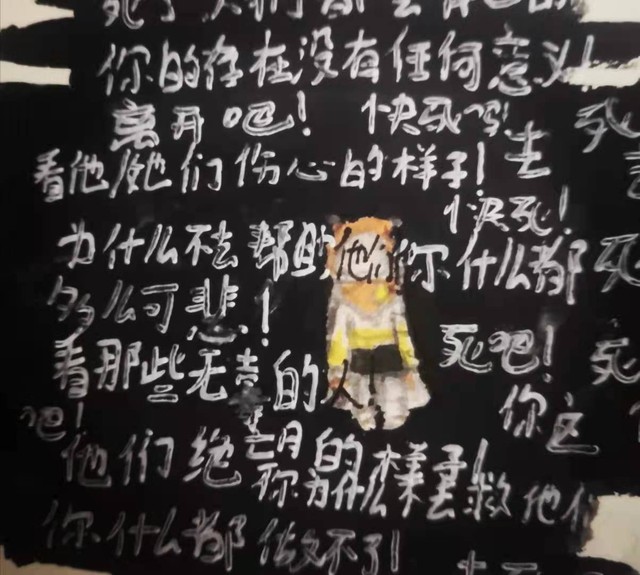 你的存在没有任何意义!
离开吧! 快死吧! 死
看他/她们伤心的样子! 去
快死!
为什么不去帮助他们你什么都 死
多么可悲!
看那些无辜的人! 死吧! 死
吧! 你这
他们绝望的样子!
你为什么不去救他们
你什么都做不了!